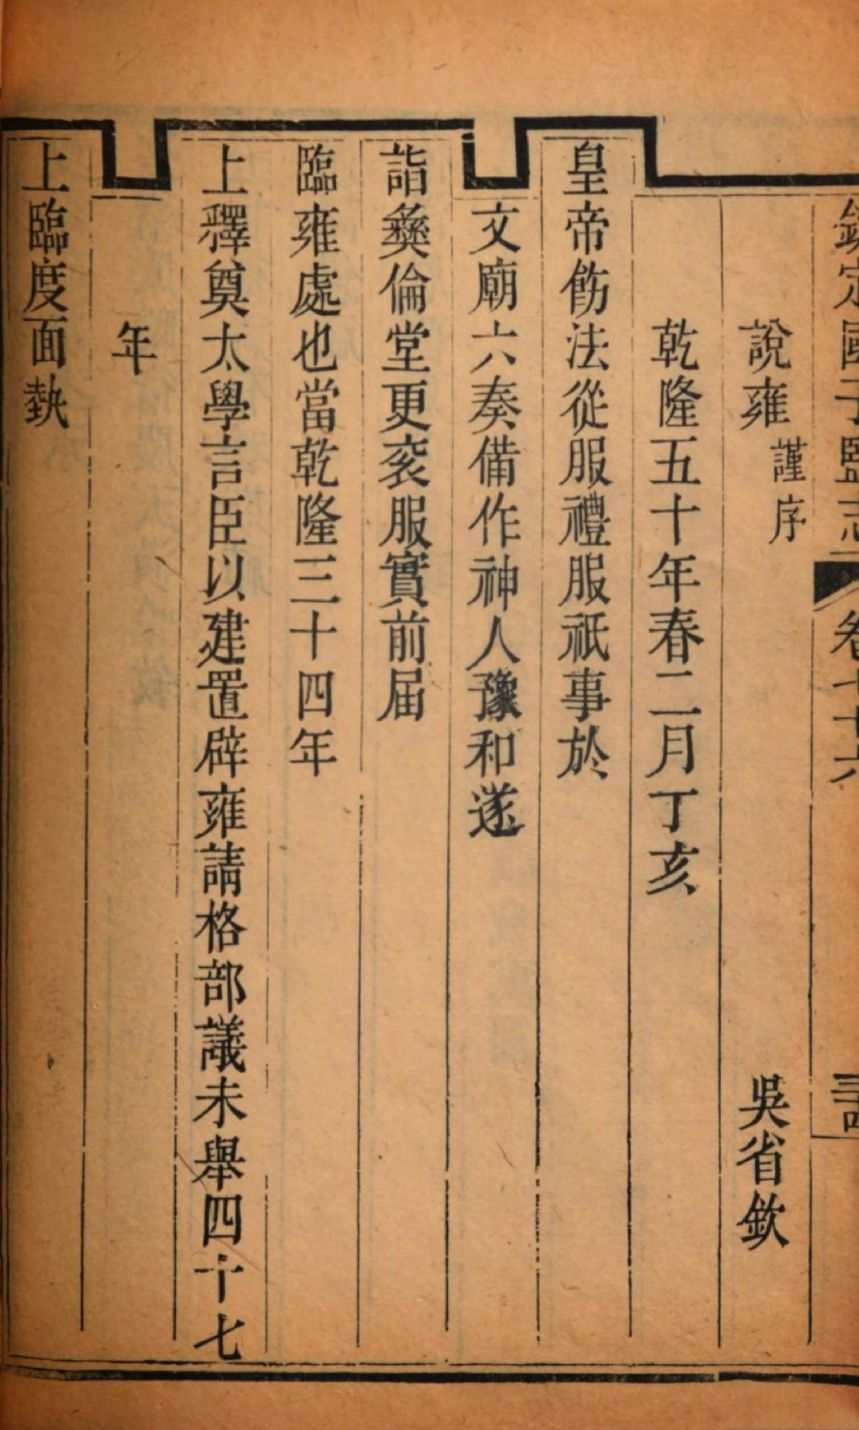 欽定國子監志 卷七十六
說雍謹序 吳省欽
乾隆五十年春二月丁亥
皇帝飭法從服禮服祇事於
文廟六奏備作神人豫和遂
詣彝倫堂更袞服實前届
臨雍處也當乾隆三十四年
上釋奠太學言臣以建置辟雍請格部議未舉四十七
年
上臨度面埶